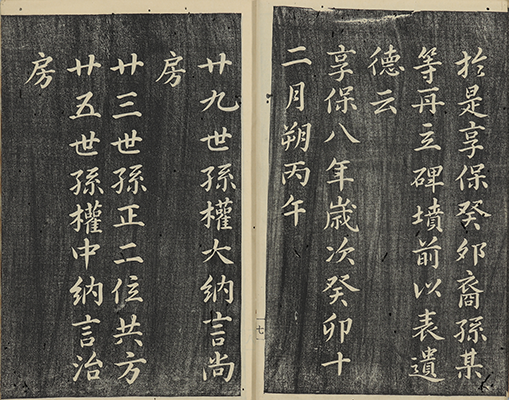 於是享保癸卯裔孫某
等再立碑墳前以表遺
德云
享保八年歲次癸卯十
二月朔丙午
廿九世孫權大納言尚
房
廿三世孫正二位共方
廿五世孫權中納言治
房